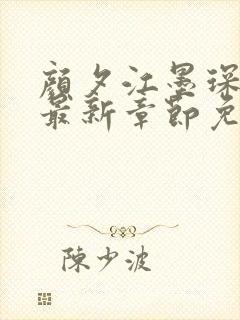 顏夕江墨琛
最新章節免
陳少波